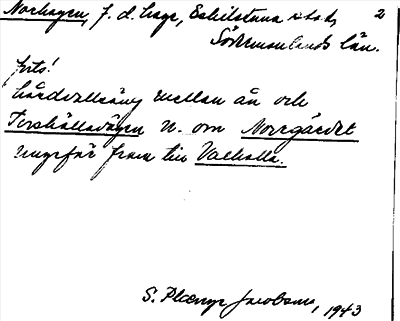 Norhagen, f. d. hage, Eskilstuna stad, 2
Södermanlands län.
forts!
hårdvallsäng mellan ån och
Torshällavägen N. om Norrgärdet
ungefär fram till Valhalla.
S. Jacobsson, 1943